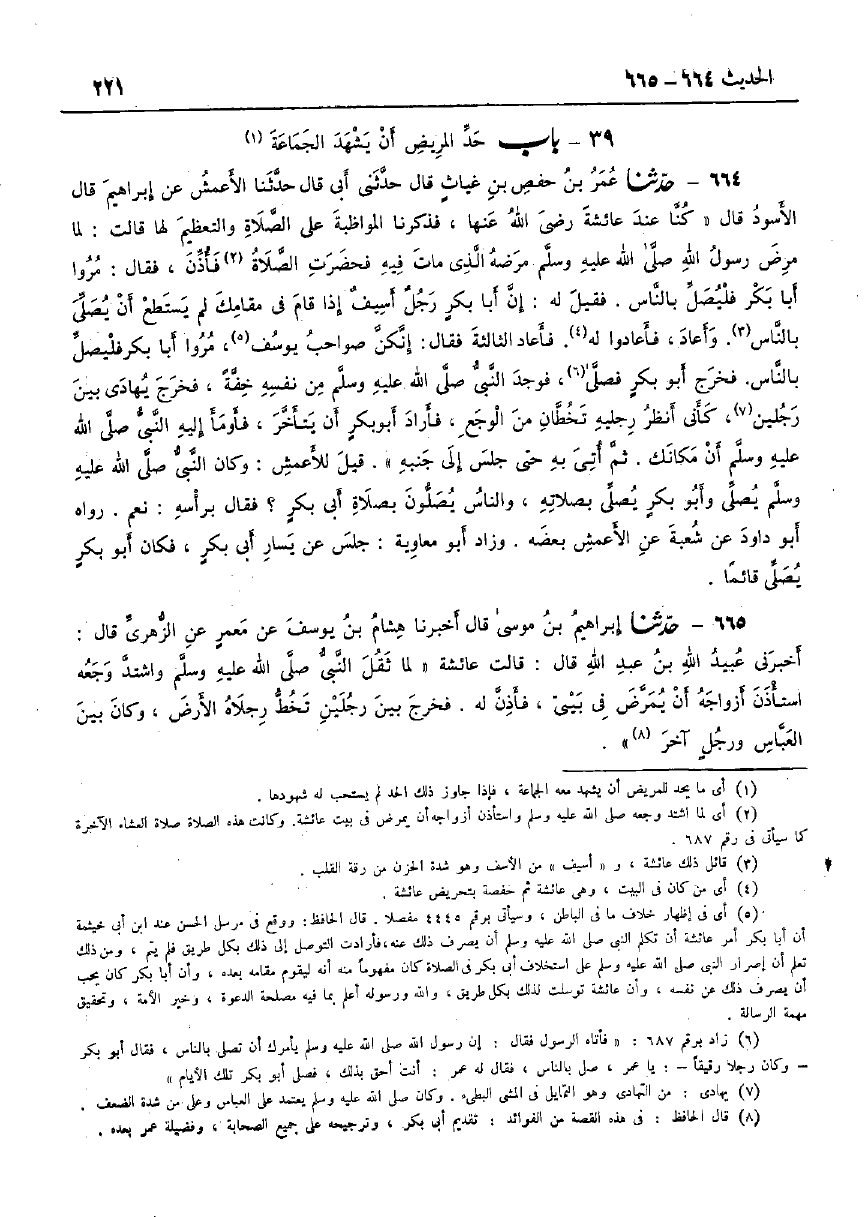 الحديث ٦٦٤ – ٦٦٥ ٢٢١
٣٩ – باب حَدِّ المرِيضِ أَنْ يَشْهَدَ الجَمَاعَةَ (١)
٦٦٤ – حدّثنا عُمَرُ بنُ حفصِ بنِ غياثٍ قال حدَّثَنى أَبى قال حدَّثَنا الأَعمشُ عن إبراهيمَ قال
الأَسودُ قال « كُنَّا عندَ عائشةَ رضىَ اللهُ عَنها ، فذكرنا المواظبةَ على الصَّلَاةِ والتعظيمَ لها قالت : لما
مرِضَ رسولُ اللهِ صلَّى الله عليهِ وسلَّم مرَضهُ الَّذِى ماتَ فِيهِ فحضَرَتِ الصَّلَاةُ (٢) فَأُذِّنَ ، فقال : مُرُوا
أَبا بَكْر فلْيُصَلِّ بالنَّاس . فقيلَ له : إنَّ أَبا بكرٍ رَجُلٌ أَسِيفٌ إذا قامَ فى مقامِكَ لم يَستَطعْ أَنْ يُصَلِّىَ
بالنَّاس (٣). وَأَعادَ ، فأَعادوا له (٤). فأَعاد الثالثةَ فقال: إنَّكنَّ صواحبُ يوسُف (٥)، مُرُوا أَبا بكر فلْيصلِّ
بالنَّاس. فخرَج أَبو بكرٍ فصلَّى (٦)، فوجدَ النَّبىُّ صلَّى الله عليهِ وسلَّم مِن نفسِهِ خِفَّةً ، فخرَجَ يُهادَى بينَ
رَجُلين (٧)، كأَنى أَنظرُ رِجليهِ تَخُطَّانِ منَ الْوجَعِ ، فأَرادَ أَبوبكرٍ أَن يَتأَخَّرَ ، فأَومَأَ إليهِ النَّبىُّ صلَّى الله
عليهِ وسلَّم أَنْ مَكانَك . ثمَّ أُتِىَ بهِ حتى جلسَ إلَى جَنبهِ » . قيلَ للأَعمشِ : وكان النَّبىُّ صلَّى الله عليهِ
وسلَّم يُصلِّى وأَبُو بكرٍ يُصلِّى بصلاتِهِ ، والناسُ يُصَلُّونَ بصلَاةِ أَبى بكرٍ ؟ فقال برأْسهِ : نعم . رواه
أَبو داودَ عن شُعبةَ عنِ الأَعمشِ بعضَه . وزاد أَبو معاوِية : جلسَ عن يَسارِ أَبى بكرٍ ، فكان أَبو بكرٍ
يُصَلِّى قائمًا .
٦٦٥ – حدّثنا إبراهيمُ بنُ موسىٰ قال أَخبرنا هِشامُ بنُ يوسفَ عن مَعمرٍ عنِ الزُّهرىِّ قال :
أَخبرَنى عُبيدُ اللهِ بنُ عبدِ اللهِ قال : قالت عائشة « لما ثَقُلَ النَّبىُّ صلَّى الله عليهِ وسلَّم واشتدَّ وَجَعُه
استأْذَنَ أَزواجَهُ أَنْ يُمَرَّضَ فى بَيْتىْ ، فأَذِنَّ له . فخرجَ بينَ رجُلَيْنِ تَخُطُّ رِجلَاهُ الأَرضَ ، وكانَ بينَ
العَبَّاسِ ورجُلٍ آخَرَ (٨)» .
(١) أى ما يحد للمريض أن يشهد معه الجماعة ، فإذا جاوز ذلك الحد لم يستحب له شهودها .
(٢) أى لما اشتد وجعه صلى الله عليه وسلم واستأذن أزواجه أن يمرض فى بيت عائشة. وكانت هذه الصلاة صلاة العشاء الآخرة
كما سيأتى فى رقم ٦٨٧ .
(٣) قائل ذلك عائشة ، و « أسيف » من الأسف وهو شدة الحزن من رقة القلب .
(٤) أى من كان فى البيت ، وهى عائشة ثم حفصة بتحريض عائشة .
(٥) أى فى إظهار خلاف ما فى الباطن ، وسيأتى برقم ٤٤٤٥ مفصلا . قال الحافظ: ووقع فى مرسل الحسن عند ابن أبى خيثمة
أن أبا بكر أمر عائشة أن تكلم النبى صلى الله عليه وسلم أن يصرف ذلك عنه،فأرادت التوصل إلى ذلك بكل طريق فلم يتم ، ومن ذلك
تعلم أن إصرار النبى صلى الله عليه وسلم على استخلاف أبى بكر فى الصلاة كان مفهوماً منه أنه ليقوم مقامه بعده ، وأن أبا بكر كان يحب
أن يصرف ذلك عن نفسه ، وأن عائشة توسلت لذلك بكل طريق ، والله ورسوله أعلم بما فيه مصلحة الدعوة ، وخير الأمة ، وتحقيق
مهمة الرسالة .
(٦) زاد برقم ٦٨٧ : « فأتاه الرسول فقال : إن رسول الله صلى الله عليه وسلم يأمرك أن تصلى بالناس ، فقال أبو بكر
– وكان رجلا رقيقاً – : يا عمر ، صل بالناس ، فقال له عمر : أنت أحق بذلك ، فصلى أبو بكر تلك الأيام »
(٧) يهادى : من التهادى وهو التمايل فى المشى البطىء . وكان صلى الله عليه وسلم يعتمد على العباس وعلى من شدة الضعف .
(٨) قال الحافظ : فى هذه القصة من الفوائد : تقديم أبى بكر ، وترجيحه على جميع الصحابة ، وفضيلة عمر بعده .